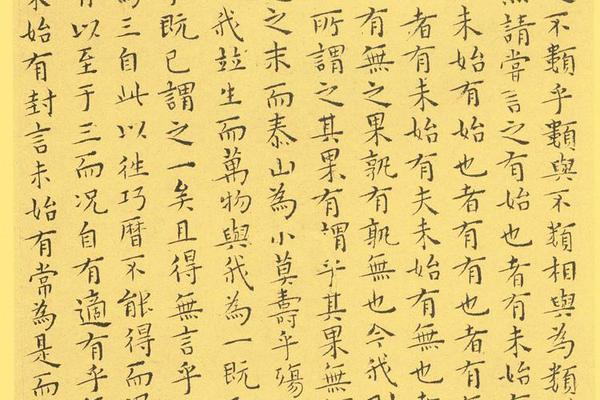 不類乎類與不類相與為類
然請嘗言之有始也者有未始
未始有始也者有有也者有
者有未始有夫未始有無也
有無之果孰有孰無也今我
所謂之其果有謂乎其果無
之末而泰山為小莫壽乎殤
我竝生而萬物與我為一既
乎既已謂之一矣且得無言乎
為三自此以往巧曆不能得而
有以至于三而况自有適有乎
未始有封言未始有常為是而